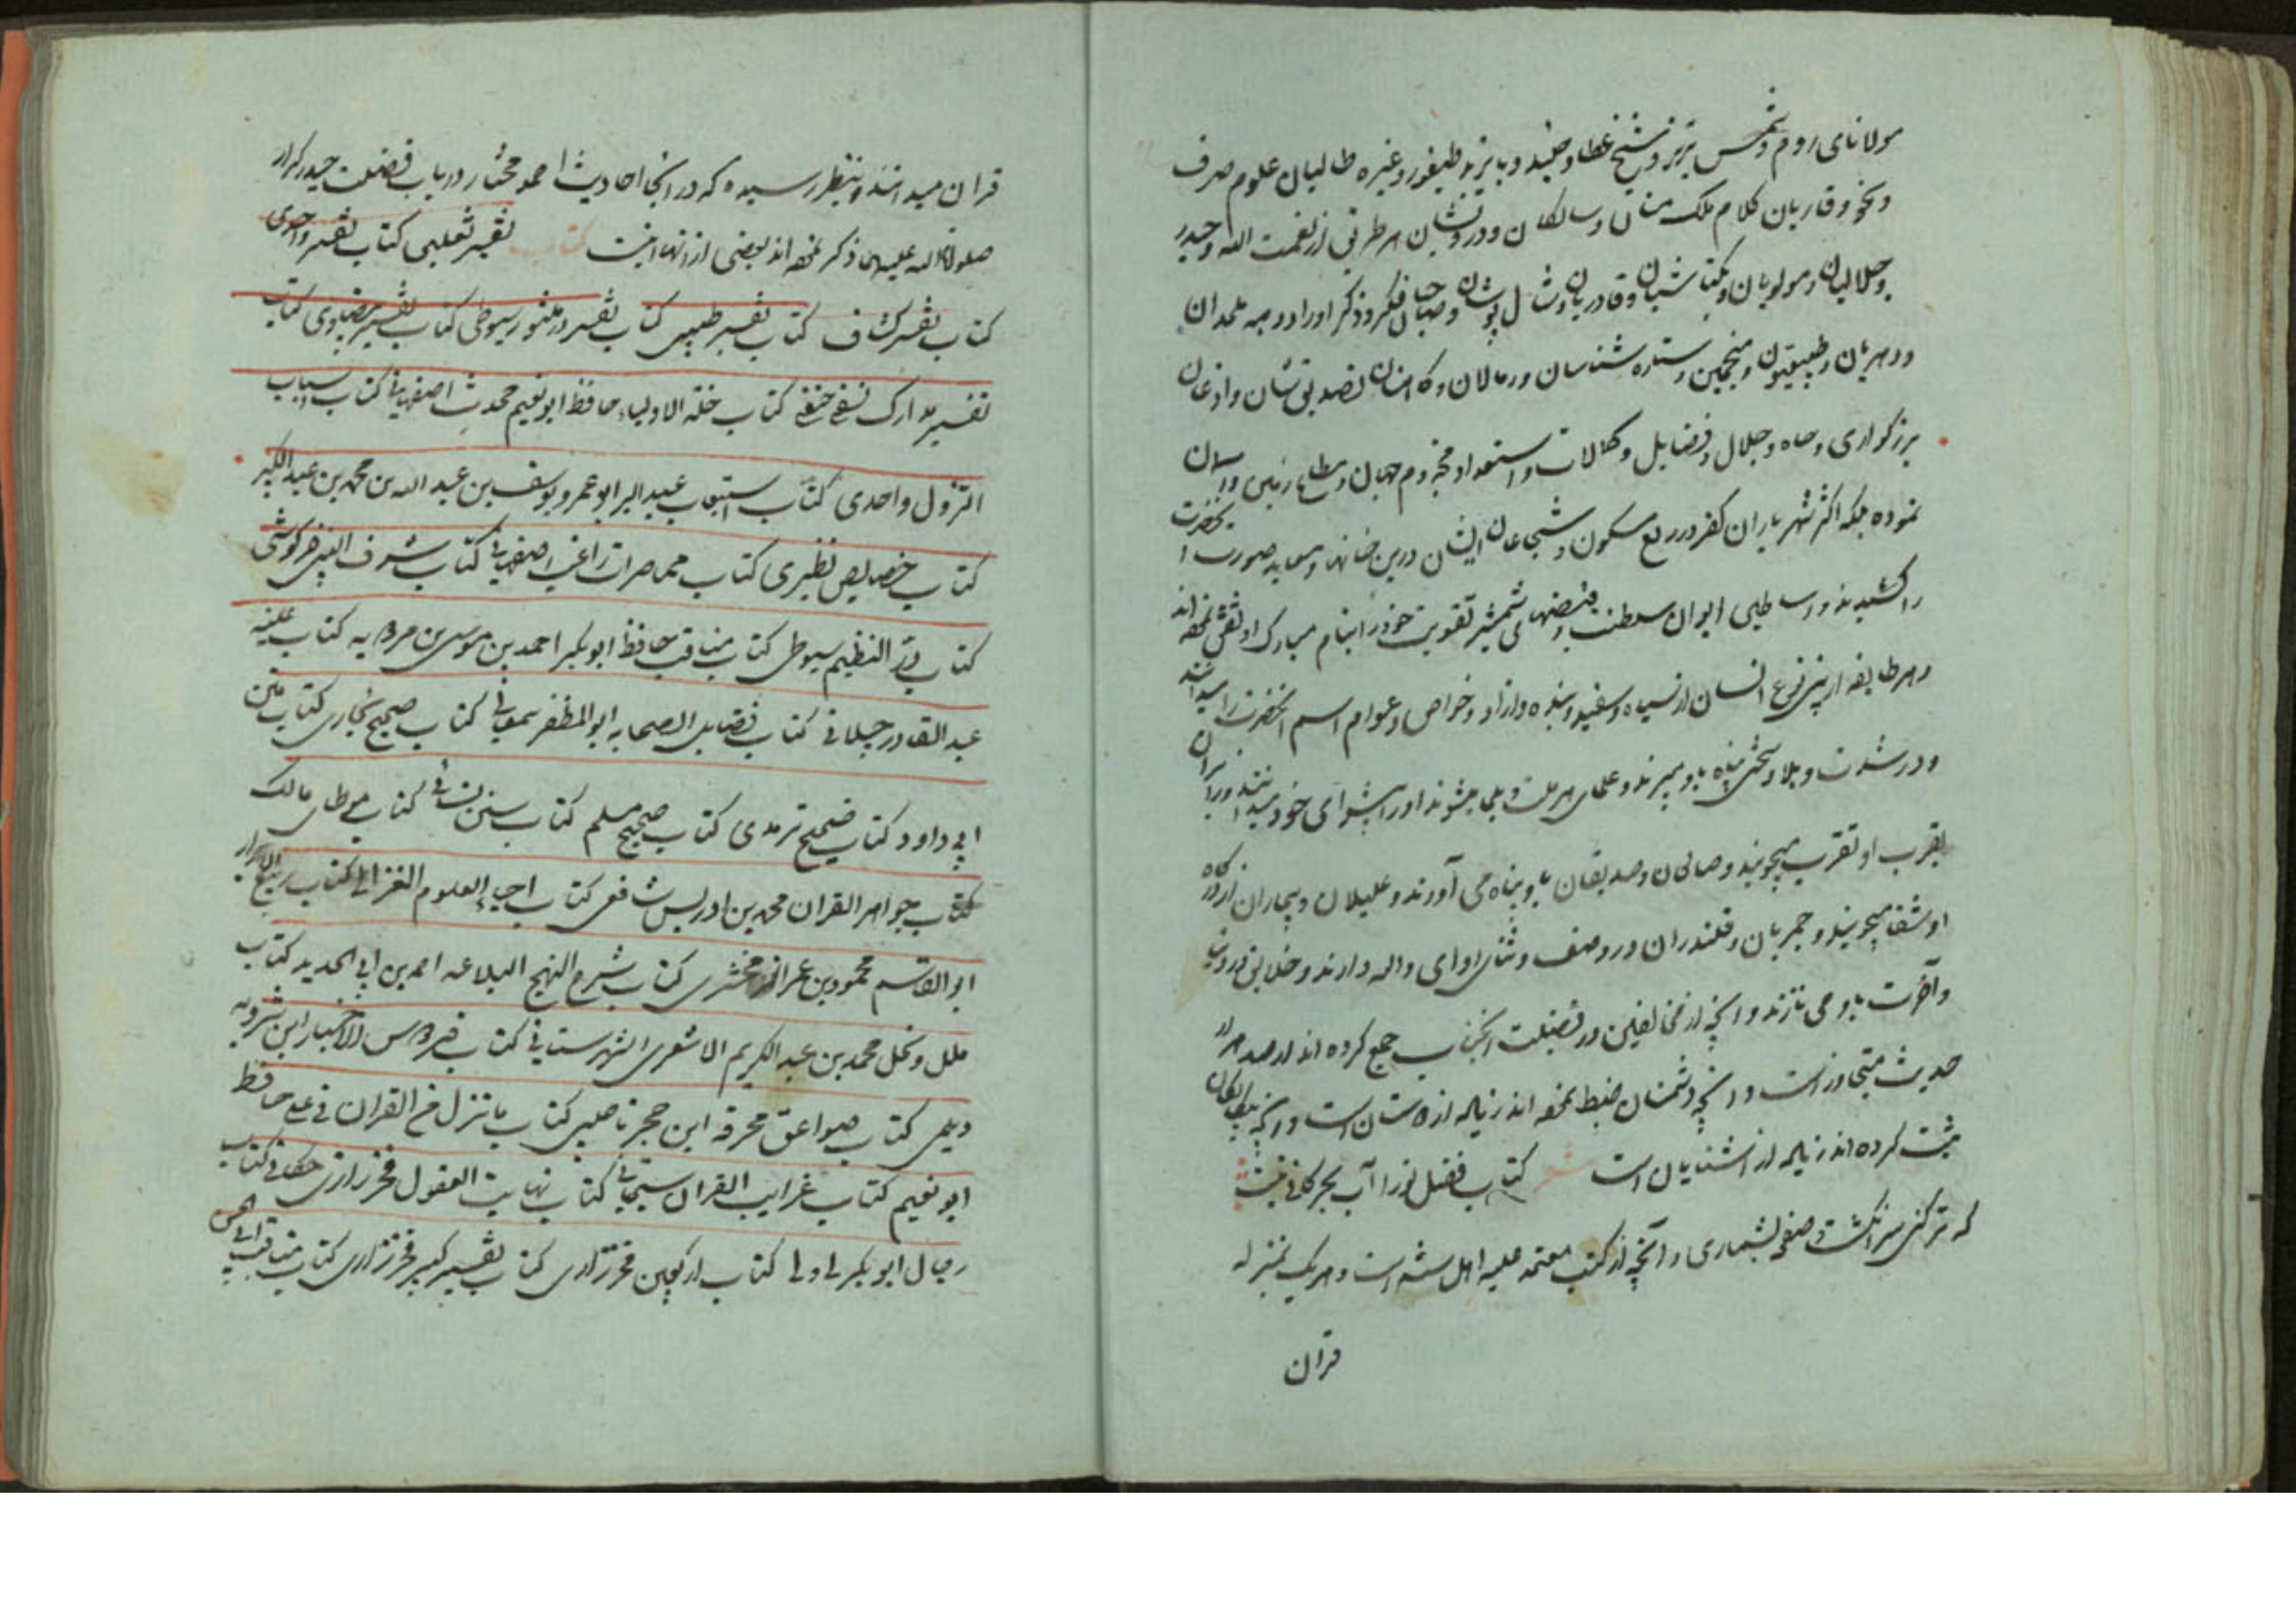 مولانای روم و شمس تبریز و شیخ عطار و جنید و بایزید طیفور و غیره طالبان علوم صرف
و نحو و قاریان کلام ملک منان و سالکان و درویشان هر طریق از نعمت الله و حیدر
و جلالیان و مولویان و بکتاشیان و قادریان و شال پوشان و فکر و ذکر اوراد و همه ملحدان
و دهریان و طبیعیون و منجمین و ستاره شناسان و رمالان و کاهنان تصدیق شان و اذعان
بزرگواری و جاه و جلال و فضایل و کمالات و استعداد مخدوم جهان و مطاع زمین و آسمان
نموده بلکه اکثر شهریاران کفر در ربع مسکون و شجاعان ایشان درین خانها و معابد صورت آنحضرت
را کشیدند و اساطین ایوان سلطنت و قبضهای شمشیر تقویت خود را بنام مبارک او نقش نموده اند
و هر طایفه از بنی نوع انسان از سیاه و سفید و بنده و آزاد و خواص و عوام اسم آنحضرت را میدانند
و در شدت و بلا و سختی پناه باو میبرند و علمای هر ملت و ملجا میشوند او را پیشوای خود میدانند
بقرب او تقرب میجویند و صدیقان باو پناه می آورند و علیلان و بیماران از درگاه
او شفا میجویند و قلندران در وصف و ثنای او وای واله دارند و خلایق در دنیا
و آخرت باو می نازند و آنچه از مخالفین در فضیلت آنجناب جمع کرده اند از صد هزار
حدیث متجاوز است و آنچه دشمنان ضبط نموده اند زیاده از دوستان است و آنچه بیگانگان
ثبت کرده اند زیاده از آشنایان است شعر کتاب فضل تو را آب بحر کافی نیست
که تر کنی سر انگشت و صفحه بشماری و آنچه از کتب معتمد علیه اهل سنت است و هر یک بمنزله
قرآن
قرآن میدانند و بنظر رسیده که در آنجا احادیث احمد مختار در باب فضیلت حیدر کرار
صلوات الله علیهما ذکر نموده اند بعضی از آنها اینست کتاب تفسیر ثعلبی کتاب تفسیر واحدی
کتاب تفسیر کشاف کتاب تفسیر طیبی کتاب تفسیر در منثور سیوطی کتاب تفسیر بیضاوی کتاب
تفسیر مدارک نسفی حنفی کتاب حلیة الاولیاء حافظ ابو نعیم محدث اصفهانی کتاب اسباب
النزول واحدی کتاب استیعاب عبید البر ابو عمرو یوسف بن عبد الله بن محمد بن عبد الکبیر
کتاب خصایص نظیری کتاب محاضرات راغب اصفهانی کتاب شرف النبی خرکوشی
کتاب در النظیم سیوطی کتاب مناقب حافظ ابو بکر احمد بن موسی بن مردویه کتاب غنیه
عبد القادر جیلانی کتاب فضایل الصحابه ابو المظفر سمعانی کتاب صحیح بخاری کتاب سنن
ابی داود کتاب صحیح ترمدی کتاب صحیح مسلم کتاب سنن نسائی کتاب موطای مالک
کتاب جواهر القران محمد بن ادریس شافعی کتاب احیاء العلوم الغزالی کتاب ربیع الابرار
ابو القاسم محمود بن عمر الزمخشری کتاب شرح النهج البلاغه احمد بن ابی الحدید کتاب
ملل و نحل محمد بن عبد الکریم الاشعری الشهرستانی کتاب فردوس الاخبار ابن شیرویه
دیلمی کتاب صواعق محرقه ابن حجر ناصبی کتاب ما نزل من القران فی علی حافظ
ابو نعیم کتاب غرایب القران کتاب نهایت العقول فخر رازی کتاب
رجال ابو بکر کتاب اربعین فخر رازی کتاب تفسیر کبیر فخر رازی کتاب مناقب ابی الحسن